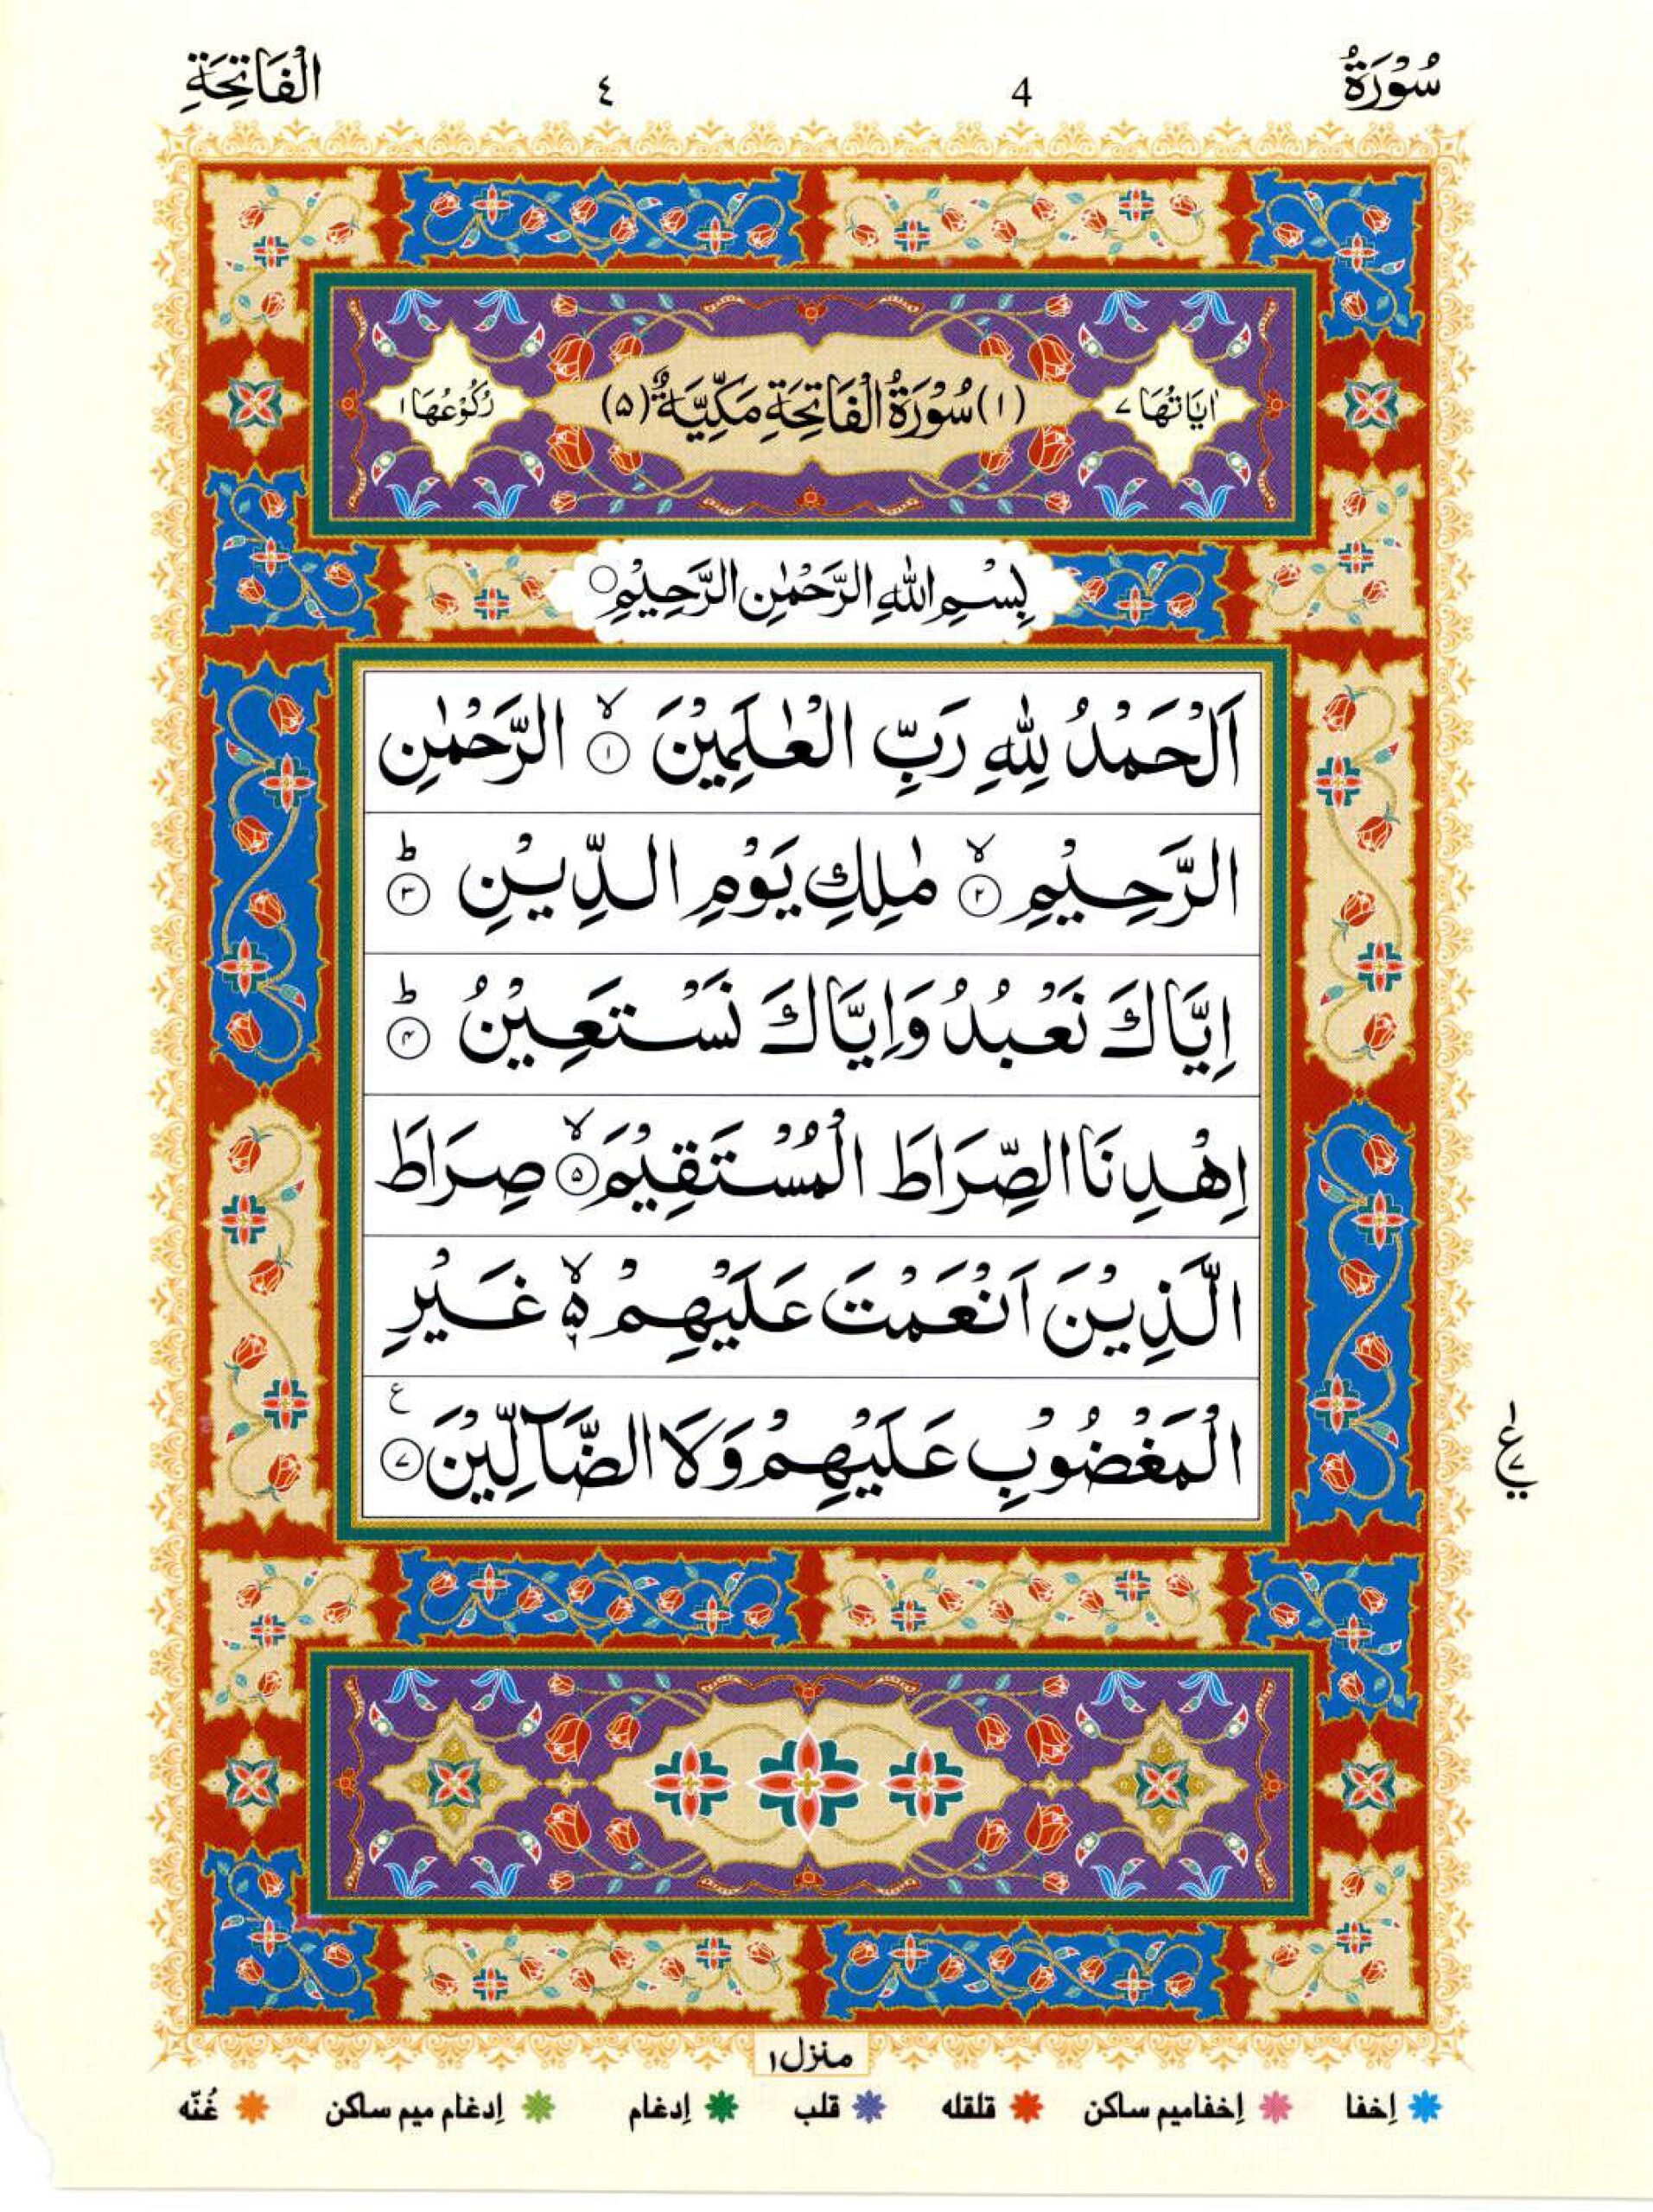 سُوْرَةُ 4 ٤ الْفَاتِحَةِ
اٰيَاتُهَا ٧ (١) سُوْرَةُ الْفَاتِحَةِ مَكِّيَّةٌ (٥) رُكُوْعُهَا ١
بِسْمِ اللّٰهِ الرَّحْمٰنِ الرَّحِيْمِ ○
اَلْحَمْدُ لِلّٰهِ رَبِّ الْعٰلَمِيْنَ ۙ ١ الرَّحْمٰنِ
الرَّحِيْمِ ۙ ٢ مٰلِكِ يَوْمِ الدِّيْنِ ؕ ٣
اِيَّاكَ نَعْبُدُ وَاِيَّاكَ نَسْتَعِيْنُ ؕ ۴
اِهْدِنَا الصِّرَاطَ الْمُسْتَقِيْمَ ۙ ۵ صِرَاطَ
الَّذِيْنَ اَنْعَمْتَ عَلَيْهِمْ ۙ۬ غَيْرِ
الْمَغْضُوْبِ عَلَيْهِمْ وَلَا الضَّآلِّيْنَ ٧ ع
١ ع ٧
منزل ١
إخفا إخفاميم ساكن قلقله قلب إدغام إدغام ميم ساكن غُنّه